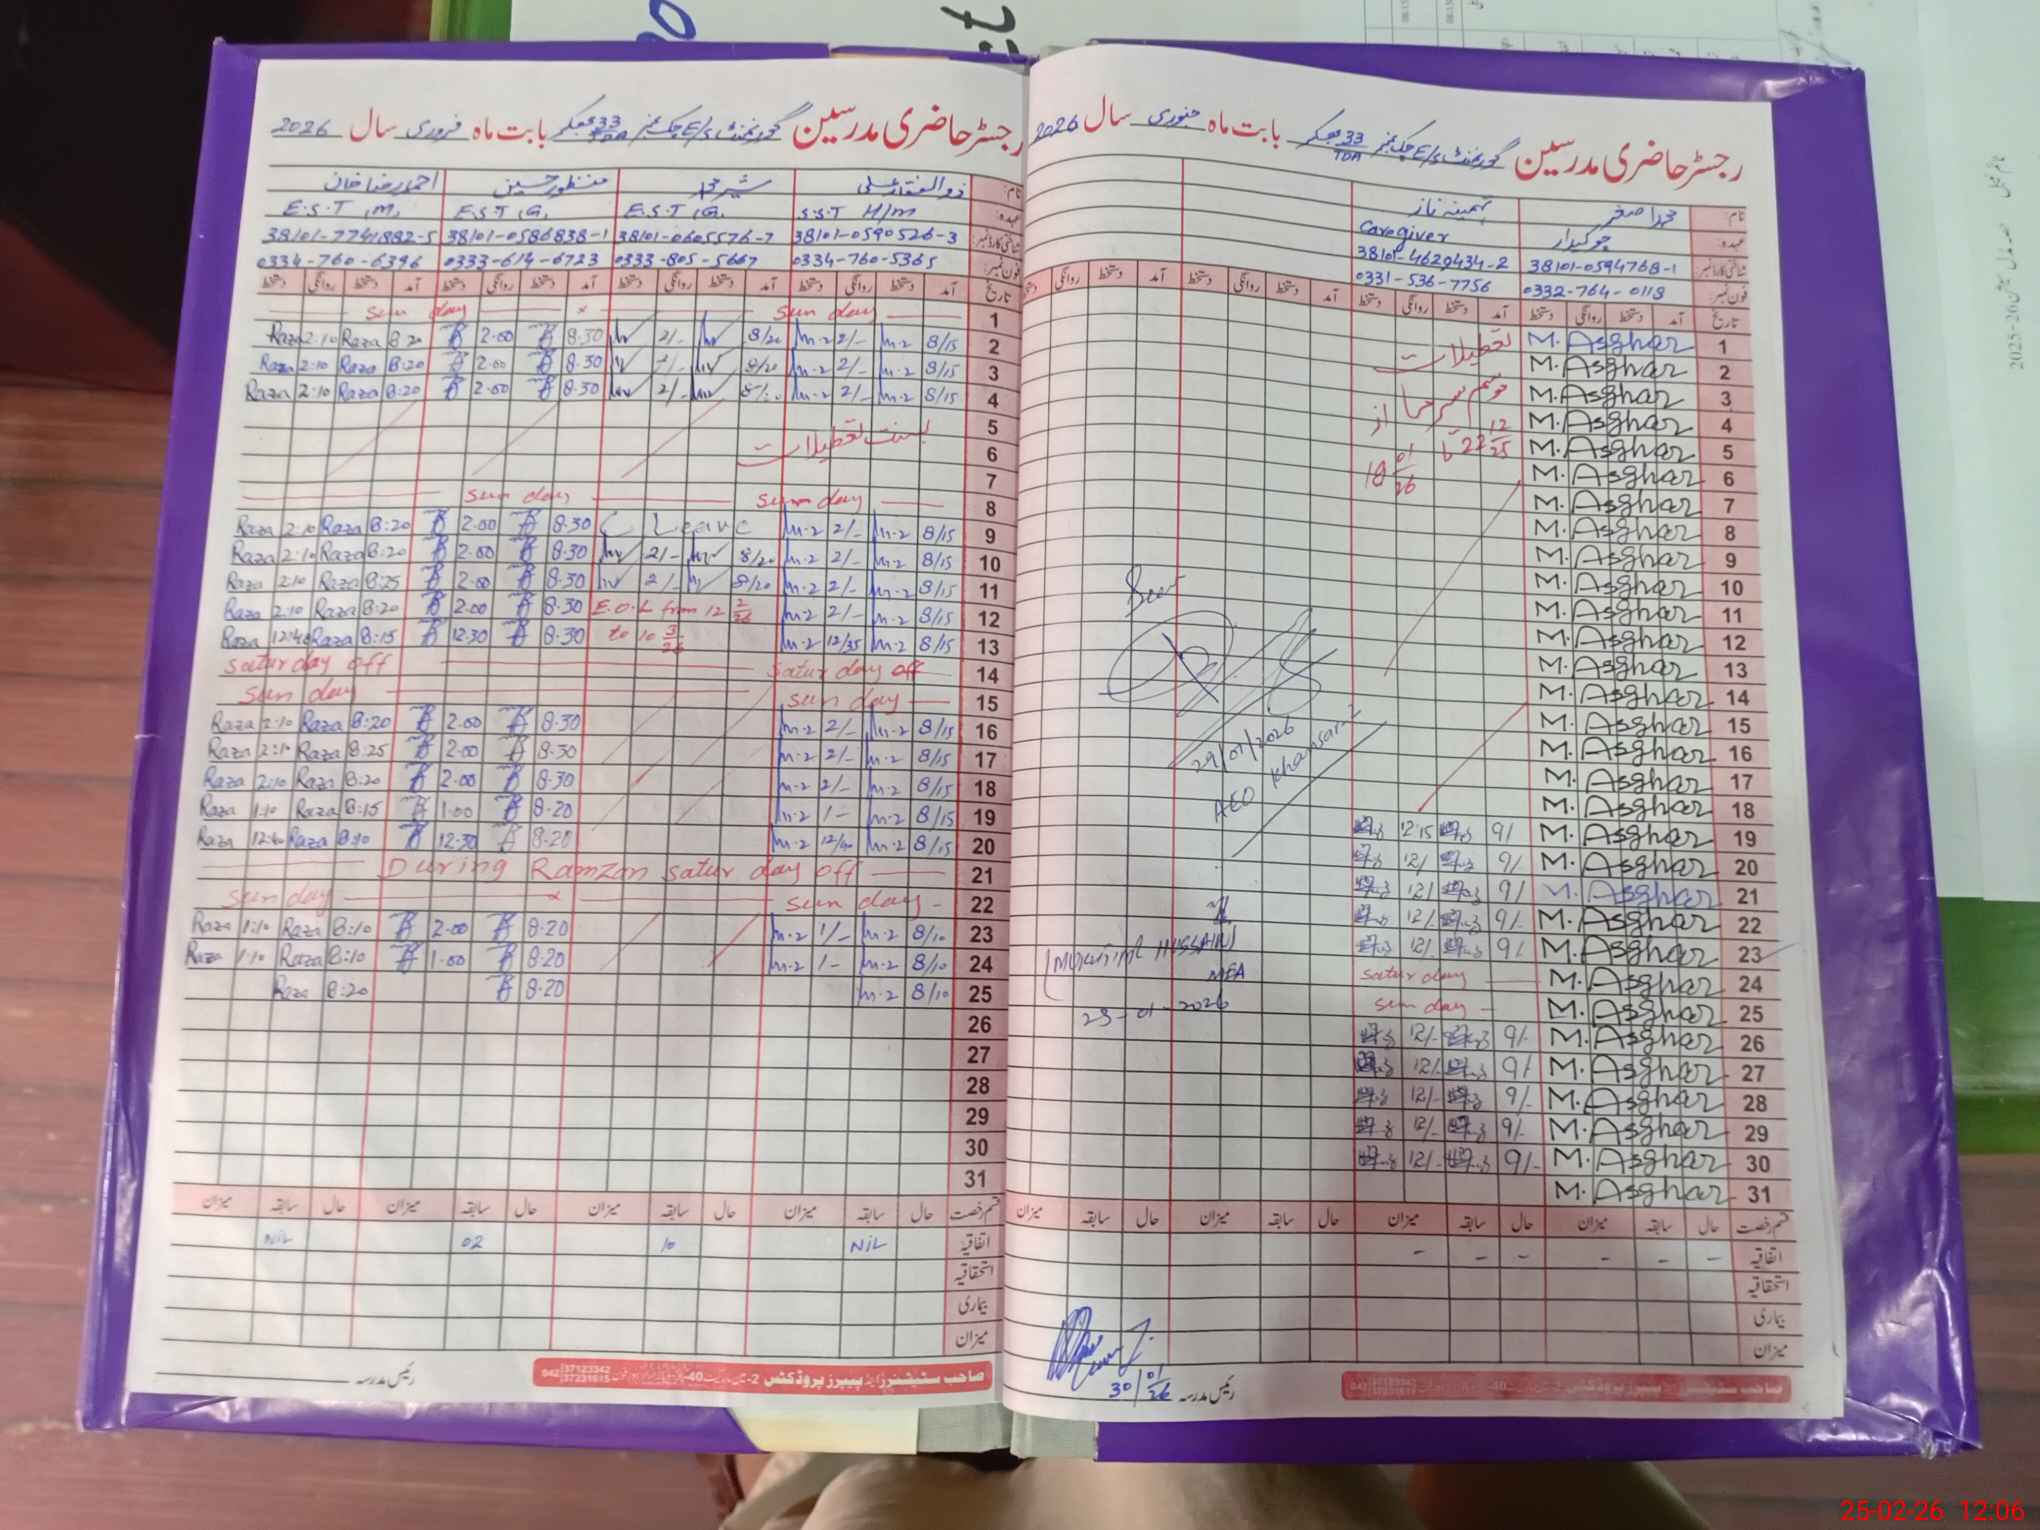 رجسٹر حاضری مدرسین گورنمنٹ E/S چک نمبر 33/TDA بھکر بابت ماہ فروری سال 2026
نام: ذوالفقار علی شیر محمد منظور حسین احمد رضا خان
عہدہ: S.S.T H/M E.S.T, G. E.S.T, G. E.S.T, M.
شناختی کارڈ نمبر: 38101-0590526-3 38101-0605576-7 38101-0586838-1 38101-7741882-5
فون نمبر: 0334-760-5365 0333-805-5667 0333-614-6723 0334-760-6396
تاریخ آمد دستخط روانگی دستخط آمد دستخط روانگی دستخط آمد دستخط روانگی دستخط آمد دستخط روانگی دستخط
1 sun day × sun day
2 8/15 m-2 2/- m-2 8/20 2/- 8.30 2.00 8:20 Raza 2:10 Raza
3 8/15 m-2 2/- m-2 8/20 2/- 8.30 2.00 8:20 Raza 2:10 Raza
4 8/15 m-2 2/- m-2 2/- 8.30 2.00 8:20 Raza 2:10 Raza
5
6 بسنت تعطیلات
7
8 sun day sun day
9 8/15 m-2 2/- m-2 Leave 8.30 2.00 8:20 Raza 2:10 Raza
10 8/15 m-2 2/- m-2 8/20 2/- 8.30 2.00 8:20 Raza 2:10 Raza
11 8/15 m-2 2/- m-2 8/20 2/- 8.30 2.00 8:25 Raza 2:10 Raza
12 8/15 m-2 2/- m-2 E.O.L from 12 2/26 8.30 2.00 8:20 Raza 2:10 Raza
13 8/15 m-2 12/35 m-2 to 10 3/26 8.30 12.30 8:15 Raza 12:40 Raza
14 satur day off satur day off
15 sun day sun day
16 8/15 m-2 2/- m-2 8.30 2.00 8:20 Raza 2:10 Raza
17 8/15 m-2 2/- m-2 8.30 2.00 8:25 Raza 2:10 Raza
18 8/15 m-2 2/- m-2 8.30 2.00 8:20 Raza 2:10 Raza
19 8/15 m-2 1- m-2 8.20 1.00 8:15 Raza 1:10 Raza
20 8/15 m-2 12/40 m-2 8.20 12.30 8:10 Raza 12:40 Raza
21 During Ramzan satur day off
22 sun day × sun day
23 8/10 m-2 1/- m-2 8.20 2.00 8:10 Raza 1:10 Raza
24 8/10 m-2 1- m-2 8.20 1.00 8:10 Raza 1:10 Raza
25 8/10 m-2 8.20 8:20 Raza
26
27
28
29
30
31
قسم رخصت حال سابقہ میزان حال سابقہ میزان حال سابقہ میزان حال سابقہ میزان
اتفاقیہ NiL 10 02 NiL
استحقاقیہ
بیماری
میزان
صاحب سٹیشنرز اینڈ پیپرز پروڈکٹس 37123342 37231615 042
رئیس مدرسہ
رجسٹر حاضری مدرسین گورنمنٹ E/S چک نمبر 33/TDA بھکر بابت ماہ جنوری سال 2026
نام: محمد اصغر تہمینہ ناز
عہدہ: چوکیدار Caregiver
شناختی کارڈ نمبر: 38101-0594768-1 38101-4629434-2
فون نمبر: 0332-764-0118 0331-536-7756
تاریخ آمد دستخط روانگی دستخط آمد دستخط روانگی دستخط آمد دستخط روانگی دستخط
1 M. Asghar تعطیلات
2 M. Asghar
3 M. Asghar موسم سرما از
4 M. Asghar
5 M. Asghar 22 12/25 تا
6 M. Asghar 18 01/26
7 M. Asghar
8 M. Asghar
9 M. Asghar
10 M. Asghar
11 M. Asghar
12 M. Asghar
13 M. Asghar
14 M. Asghar
15 M. Asghar
16 M. Asghar
17 M. Asghar
18 M. Asghar
19 M. Asghar 9/ 12:15
20 M. Asghar 9/- 12/
21 M. Asghar 9/ 12/
22 M. Asghar 9/- 12/-
23 M. Asghar 9/ 12/
24 M. Asghar satur day
25 M. Asghar sun day
26 M. Asghar 9/- 12/-
27 M. Asghar 9/ 12/-
28 M. Asghar 9/- 12/-
29 M. Asghar 9/- 12/-
30 M. Asghar 9/- 12/-
31 M. Asghar
29/01/2026
AEO Khansar
HUSSAIN
MEA
23-01-2026
قسم رخصت حال سابقہ میزان حال سابقہ میزان حال سابقہ میزان
اتفاقیہ - - - - - -
استحقاقیہ
بیماری
میزان
صاحب سٹیشنرز اینڈ پیپرز پروڈکٹس
رئیس مدرسہ 30/01/26
25-02-26 12:06